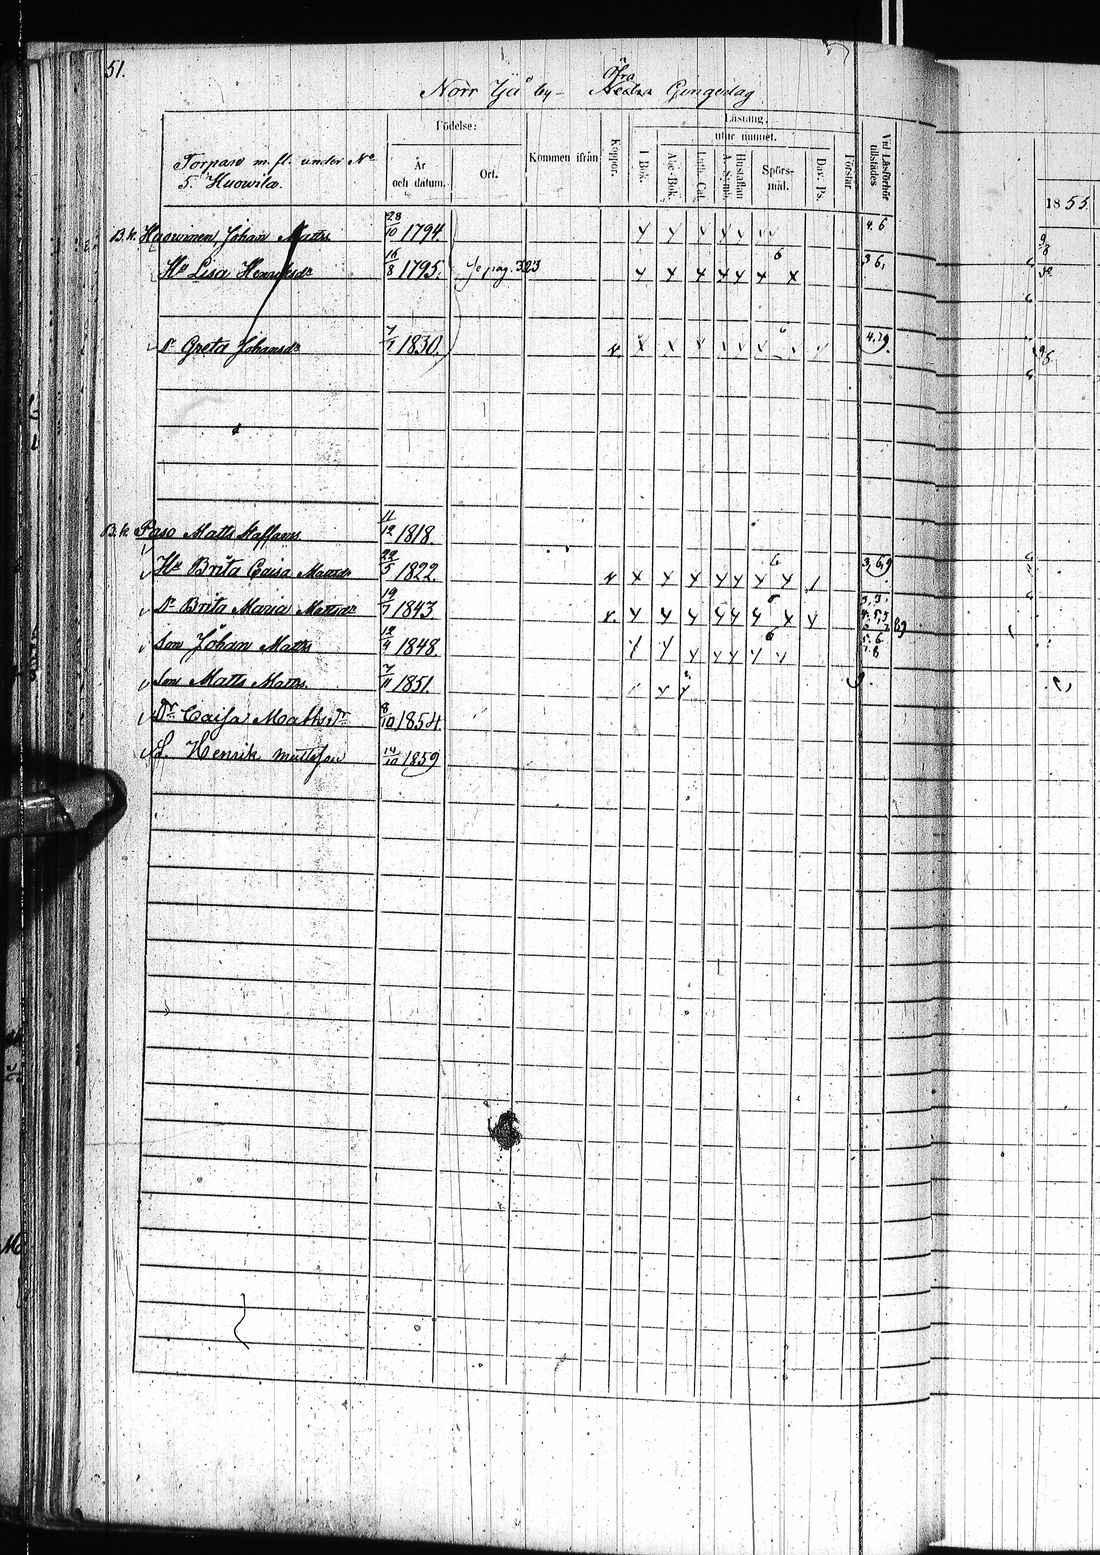 51.
Norr Yå by - Öfra Gengerdag
Torpare m. fl. under No
5. Huowila.
Födelse:
År
och datum.
Ort.
Kommen ifrån
Koppor.
Läsning,
utur minnet.
I Bok.
Abc-Bok.
Luth. Cat.
Hustaflan
A. Symb.
Spörs-
mål.
Dav. Ps.
Förstår
Vid Läsförhör
tillstädes
1855.
B.k. Huowinen, Johan Matts. 28/10 1794. 4. 6
Hu Lisa Henriksdr 16/8 1795. Se pag. 323 6 3 6,
Dr Greta Johansdr 7/7 1830. 6 4, 7, 9.
B.k. Paso Matts Staffans 11/12 1818
Hu Brita Caisa Mattsdr 22/5 1822. 6 3, 6, 9
Dr Brita Maria Mattsdr 19/7 1843.
Son Johan Matts 12/9 1848. 6
Son Matts Matts. 7/11 1851.
Dr Caisa MattsDr 8/10 1854.
S. Henrik Mattsson 14/10 1859